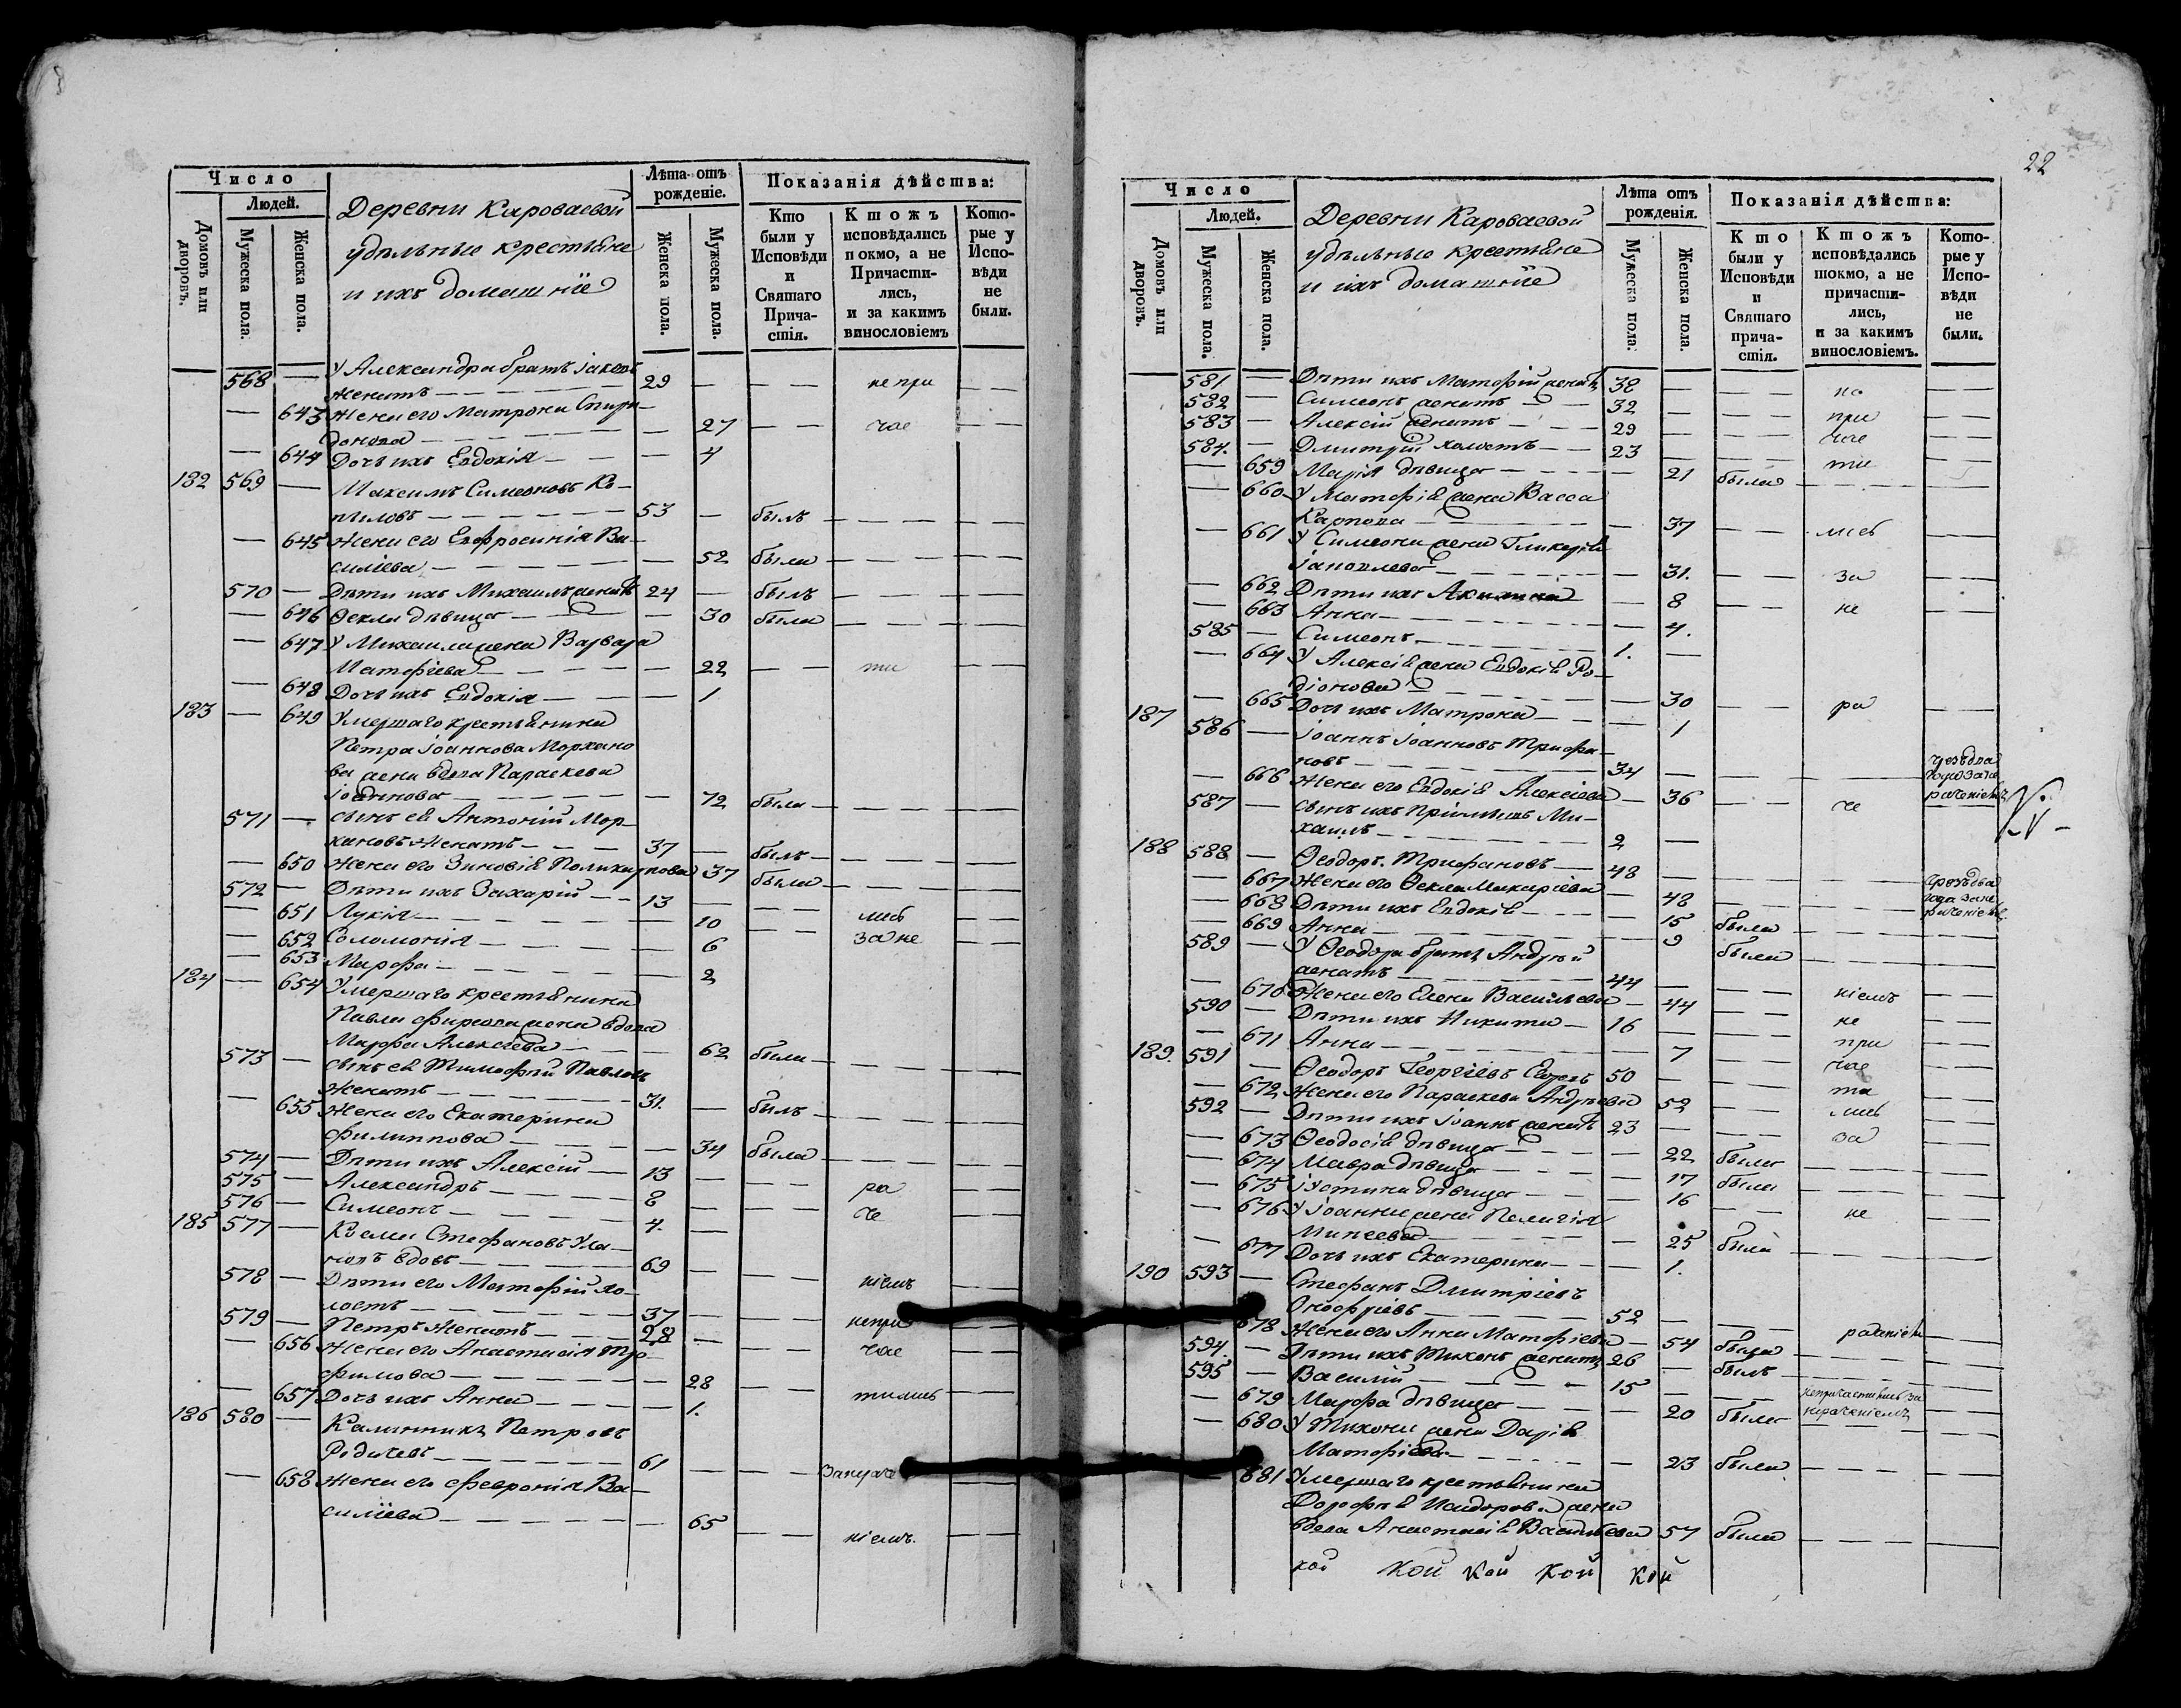 22
Число
Лѣта отъ рожденіе.
Показанія дѣйства:
Домовъ или дворовъ.
Людей.
Мужеска пола.
Женска пола.
Деревни Кароваевой
удѣльные крестьяне
и ихъ домашніе
Женска пола.
Мужеска пола.
Кто были у Исповѣди и Святаго Причастія.
Ктожъ исповѣдались покмо, а не Причастились, и за какимъ винословіемъ
Которые у Исповѣди не были.
568 — У Александра братъ Іаковъ
женатъ — 29 — — — непри — —
— 643 Жена его Матрона Спири-
донова — — 27 — — час — —
— 644 Дочь ихъ Евдокія — — 4
182 569 — Максимъ Симеоновъ Ко-
пыловъ — 53 — былъ — — —
— 645 Жена его Евфросинія Ва-
силіева — — 52 была — — —
570 — Дѣти ихъ Михаилъ женатъ 24 — былъ — — —
— 646 Ѳекла дѣвица — — 30 была — — —
— 647 У Михаила жена Варвара
Матфіева — — 22 — — ти — —
— 648 Дочь ихъ Евдокія — — 1
183 — 649 Умершаго крестьянина
Петра Іоаннова Моржано
ва жена вдова Параскева
Іоаннова — — 72 была — — —
571 — Сынъ ея Антоній Мор-
жановъ женатъ — 37 — былъ — — —
— 650 Жена его Зиновія Поликарпова 37 была — — —
572 — Дѣти ихъ Захарій — 13 — — —
— 651 Лукія — — 10 — — лись — —
— 652 Соломонія — — 6 — — за не — —
— 653 Марфа — — 2
184 — 654 Умершаго крестьянина
Павла Фирсова жена вдова
Марфа Алексѣева — — 62 была — — —
573 — Сынъ ея Тимофѣй Павловъ
женатъ — 31. — былъ — — —
— 655 Жена его Екатерина
Филиппова — — 34 была — — —
574 — Дѣти ихъ Алексій — 13 — — — ра — —
575 — Александръ — 8 — — — че — —
576 — Симеонъ — 4. —
185 577 — Косма Стефановъ Ула-
новъ вдовъ — 69 — — — ніемъ — —
578 — Дѣти его Матфій хо-
лостъ — 37 — — — непри
579 — Петръ женатъ — 28 — — — час — —
— 656 Жена его Анастасія Тро-
фимова — — 28 — — тились — —
— 657 Дочь ихъ Анна — — 1.
186 580 — Калинникъ Петровъ
Родичевъ — 61 — — — Занераче
— 658 Жена его Февронія Ва-
силіева — — 65 — — ніемъ. — —
Число
Лѣта отъ рожденія.
Показанія дѣйства:
Домовъ или дворовъ.
Людей.
Мужеска пола.
Женска пола.
Деревни Кароваевой
удѣльные крестьяне
и ихъ домашніе
Мужеска пола.
Женска пола.
Кто были у Исповѣди и Святаго причастія.
Ктожъ исповѣдались токмо, а не причастились, и за какимъ винословіемъ.
Которые у Исповѣди не были.
581 — Дѣти ихъ Матфій женатъ 38 — — — не — —
582 — Симеонъ женатъ — 32 — — — при — —
583 — Алексій женатъ — 29 — — — час — —
584. — Дмитрій холостъ — 23 — — — ти — —
— 659 Марія дѣвица — — 21 была — — —
— 660 У Матфія жена Васса
Карпова — — 37 — — лись — —
— 661 У Симеона жена Гликерія
Іаковлева — — 31. — — за — —
— 662 Дѣти ихъ Акилина — — 8 — — не — —
— 663 Анна — — 4.
585 — Симеонъ — 1. —
— 664 У Алексія жена Евдокія Ро-
діонова — — 30 — — ра — —
— 665 Дочь ихъ Матрона — — 1
187 586 — Іоаннъ Іоанновъ Трифа-
новъ — 34 — — — чрезъ два года за не раченіемъ
— 666 Жена его Евдокія Алексіева — 36 — — че
587 — Сынъ ихъ пріимышъ Ми-
хаилъ — 2 —
188 588 — Ѳеодоръ Трифановъ — 48 — — — чрезъ два года за не раченіемъ
— 667 Жена его Ѳекла Макаріева — 48 — — —
— 668 Дѣти ихъ Евдокія — — 15 была — — —
— 669 Анна — — 9 была — — —
589 — У Ѳеодора братъ Андрей
женатъ — 44 — — — ніемъ — —
— 670 Жена его Елена Василіева — 44 — — не — —
590 — Дѣти ихъ Никита — 16 — — — при — —
— 671 Анна — — 7 — — час — —
189. 591 — Ѳеодоръ Георгіевъ 50 — — — ти — —
— 672 Жена его Параскева Андреева 52 — — лись — —
592 — Дѣти ихъ Іоаннъ женатъ 23 — — — за — —
— 673 Ѳеодосія дѣвица — — 22 была — — —
— 674 Мавра дѣвица — — 17 была — — —
— 675 Іустина дѣвица — — 16 — — не — —
— 676 У Іоанна жена Пелагія
Минеева — — 25 была — — —
— 677 Дочь ихъ Екатерина — — 1.
190 593 — Стефанъ Дмитріевъ
Онофріевъ — 52 — — — раченіемъ — —
678 Жена его Анна Матфіева — 54 была — — —
594. — Дѣти ихъ Тихонъ женатъ 26 — былъ — — —
595 — Василій — 15 — — непричастились за нераченіемъ
— 679 Марфа дѣвица — — 20 была — — —
— 680 У Тихона жена Дарія
Матфіева — — 23 была — — —
681 Умершаго крестьянина
Дорофея Исидорова жена
вдова Анастасія Василіева 57 была — — —
кой кой кой кой кой